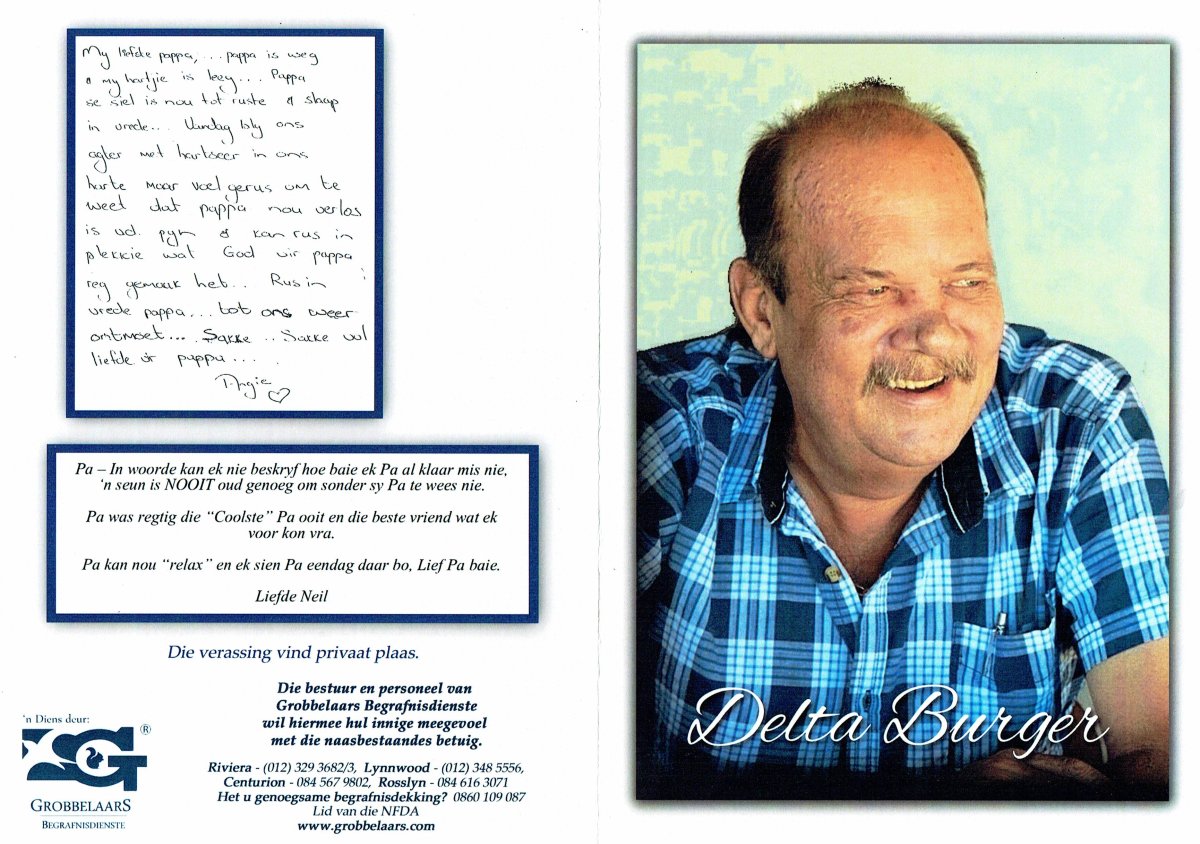 My liefde pappa,... pappa is weg
& my hartjie is leeg... Pappa
se siel is nou tot ruste & slaap
in vrede... Vandag bly ons
agter met hartseer in ons
harte maar voel gerus om te
weet dat pappa nou verlos
is vd. pyn & kan rus in
plekkie wat God vir pappa
reg gemaak het... Rus in
vrede pappa... tot ons weer
ontmoet... Sakke.. Sakke vol
liefde vir pappa....
Angie
Pa – In woorde kan ek nie beskryf hoe baie ek Pa al klaar mis nie,
‘n seun is NOOIT oud genoeg om sonder sy Pa te wees nie.
Pa was regtig die “Coolste” Pa ooit en die beste vriend wat ek
voor kon vra.
Pa kan nou “relax” en ek sien Pa eendag daar bo, Lief Pa baie.
Liefde Neil
Die verassing vind privaat plaas.
Die bestuur en personeel van
Grobbelaars Begrafnisdienste
wil hiermee hul innige meegevoel
met die naasbestaandes betuig.
'n Diens deur:
G®
GROBBELAARS
BEGRAFNISDIENSTE
Riviera - (012) 329 3682/3, Lynnwood - (012) 348 5556,
Centurion - 084 567 9802, Rosslyn - 084 616 3071
Het u genoegsame begrafnisdekking? 0860 109 087
Lid van die NFDA
www.grobbelaars.com
Delta Burger